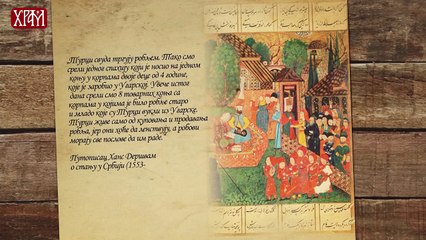 ХРАМ
Турци свуда тргују робљем. Тако смо
срели једног спахију који је носио на једном
коњу у корпама двоје деце од 4 године,
које је заробио у Угарској. Увече истог
дана срели смо 8 товарних коња са
корпама у којима је било робље старо
и младо које су Турци вукли из Угарске.
Турци живе само од куповања и продавања
робља, јер они хоће да ленствују, а робови
морају све послове да им раде.
Путописац Ханс Дершвам
о стању у Србији (1553-